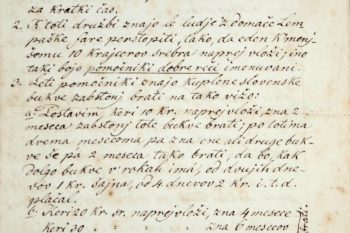 za kratki čas.
2. K toti družbi znajo le ludje z domače Lem
paške fare perstopiti, tako, da eden k'menj
šemu 10 krajcerov srebra naprej vloži, ino
taki bojo pomočniki dobre reči imenuvani.
3. Leti pomočniki znajo kuplene slovenske
bukve zabstonj brati na tako vižo:
a. Zostavim, keri 10 kr. naprej vloži, zna 2
meseca zabstonj tote bukve brati; po totima
dvema mesecoma pa zna ene ali druge buk-
ve še pa 2 meseca tako brati, da bo, kak
dolgo bukve v' rokah imá, od dvojih dne-
vov 1 kr. šajna, od 4 dnevov 2 kr. i. t. d.
plačal.
b. Keri 20 kr. sr. naprej vloži, zna 4 mesece
keri 30 " " " zna 6 mesecov
brati